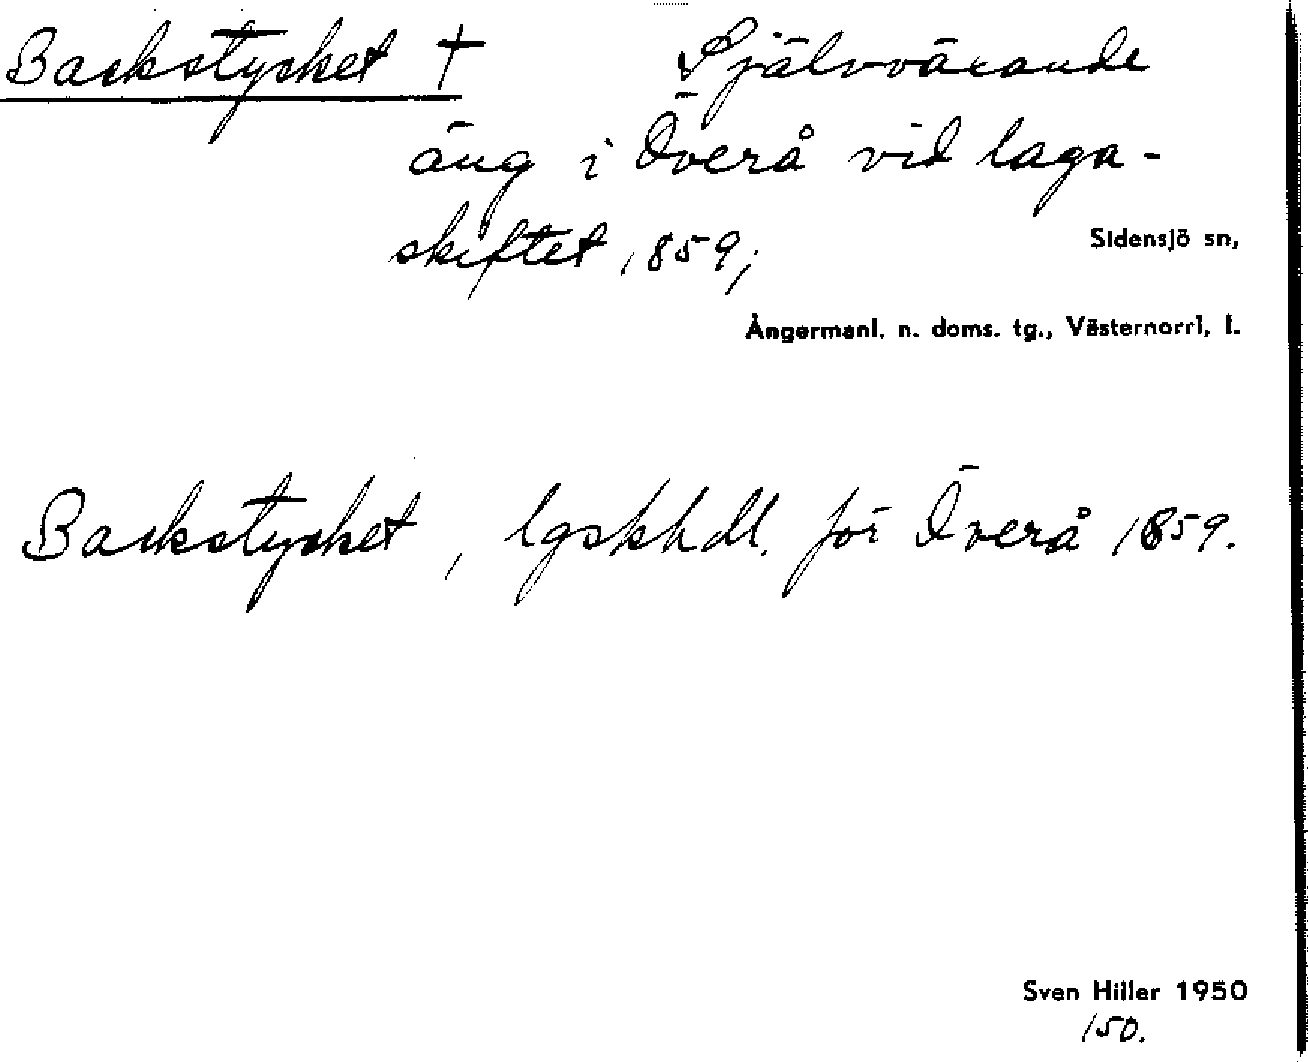 Backstycket † Självvärande
äng i Överå vid laga-
skiftet 1859;
Sidensjö sn,
Ångermanl. n. doms. tg., Västernorrl. l.
Backstycket, lgskhdl. för Överå 1859.
Sven Hiller 1950
150.